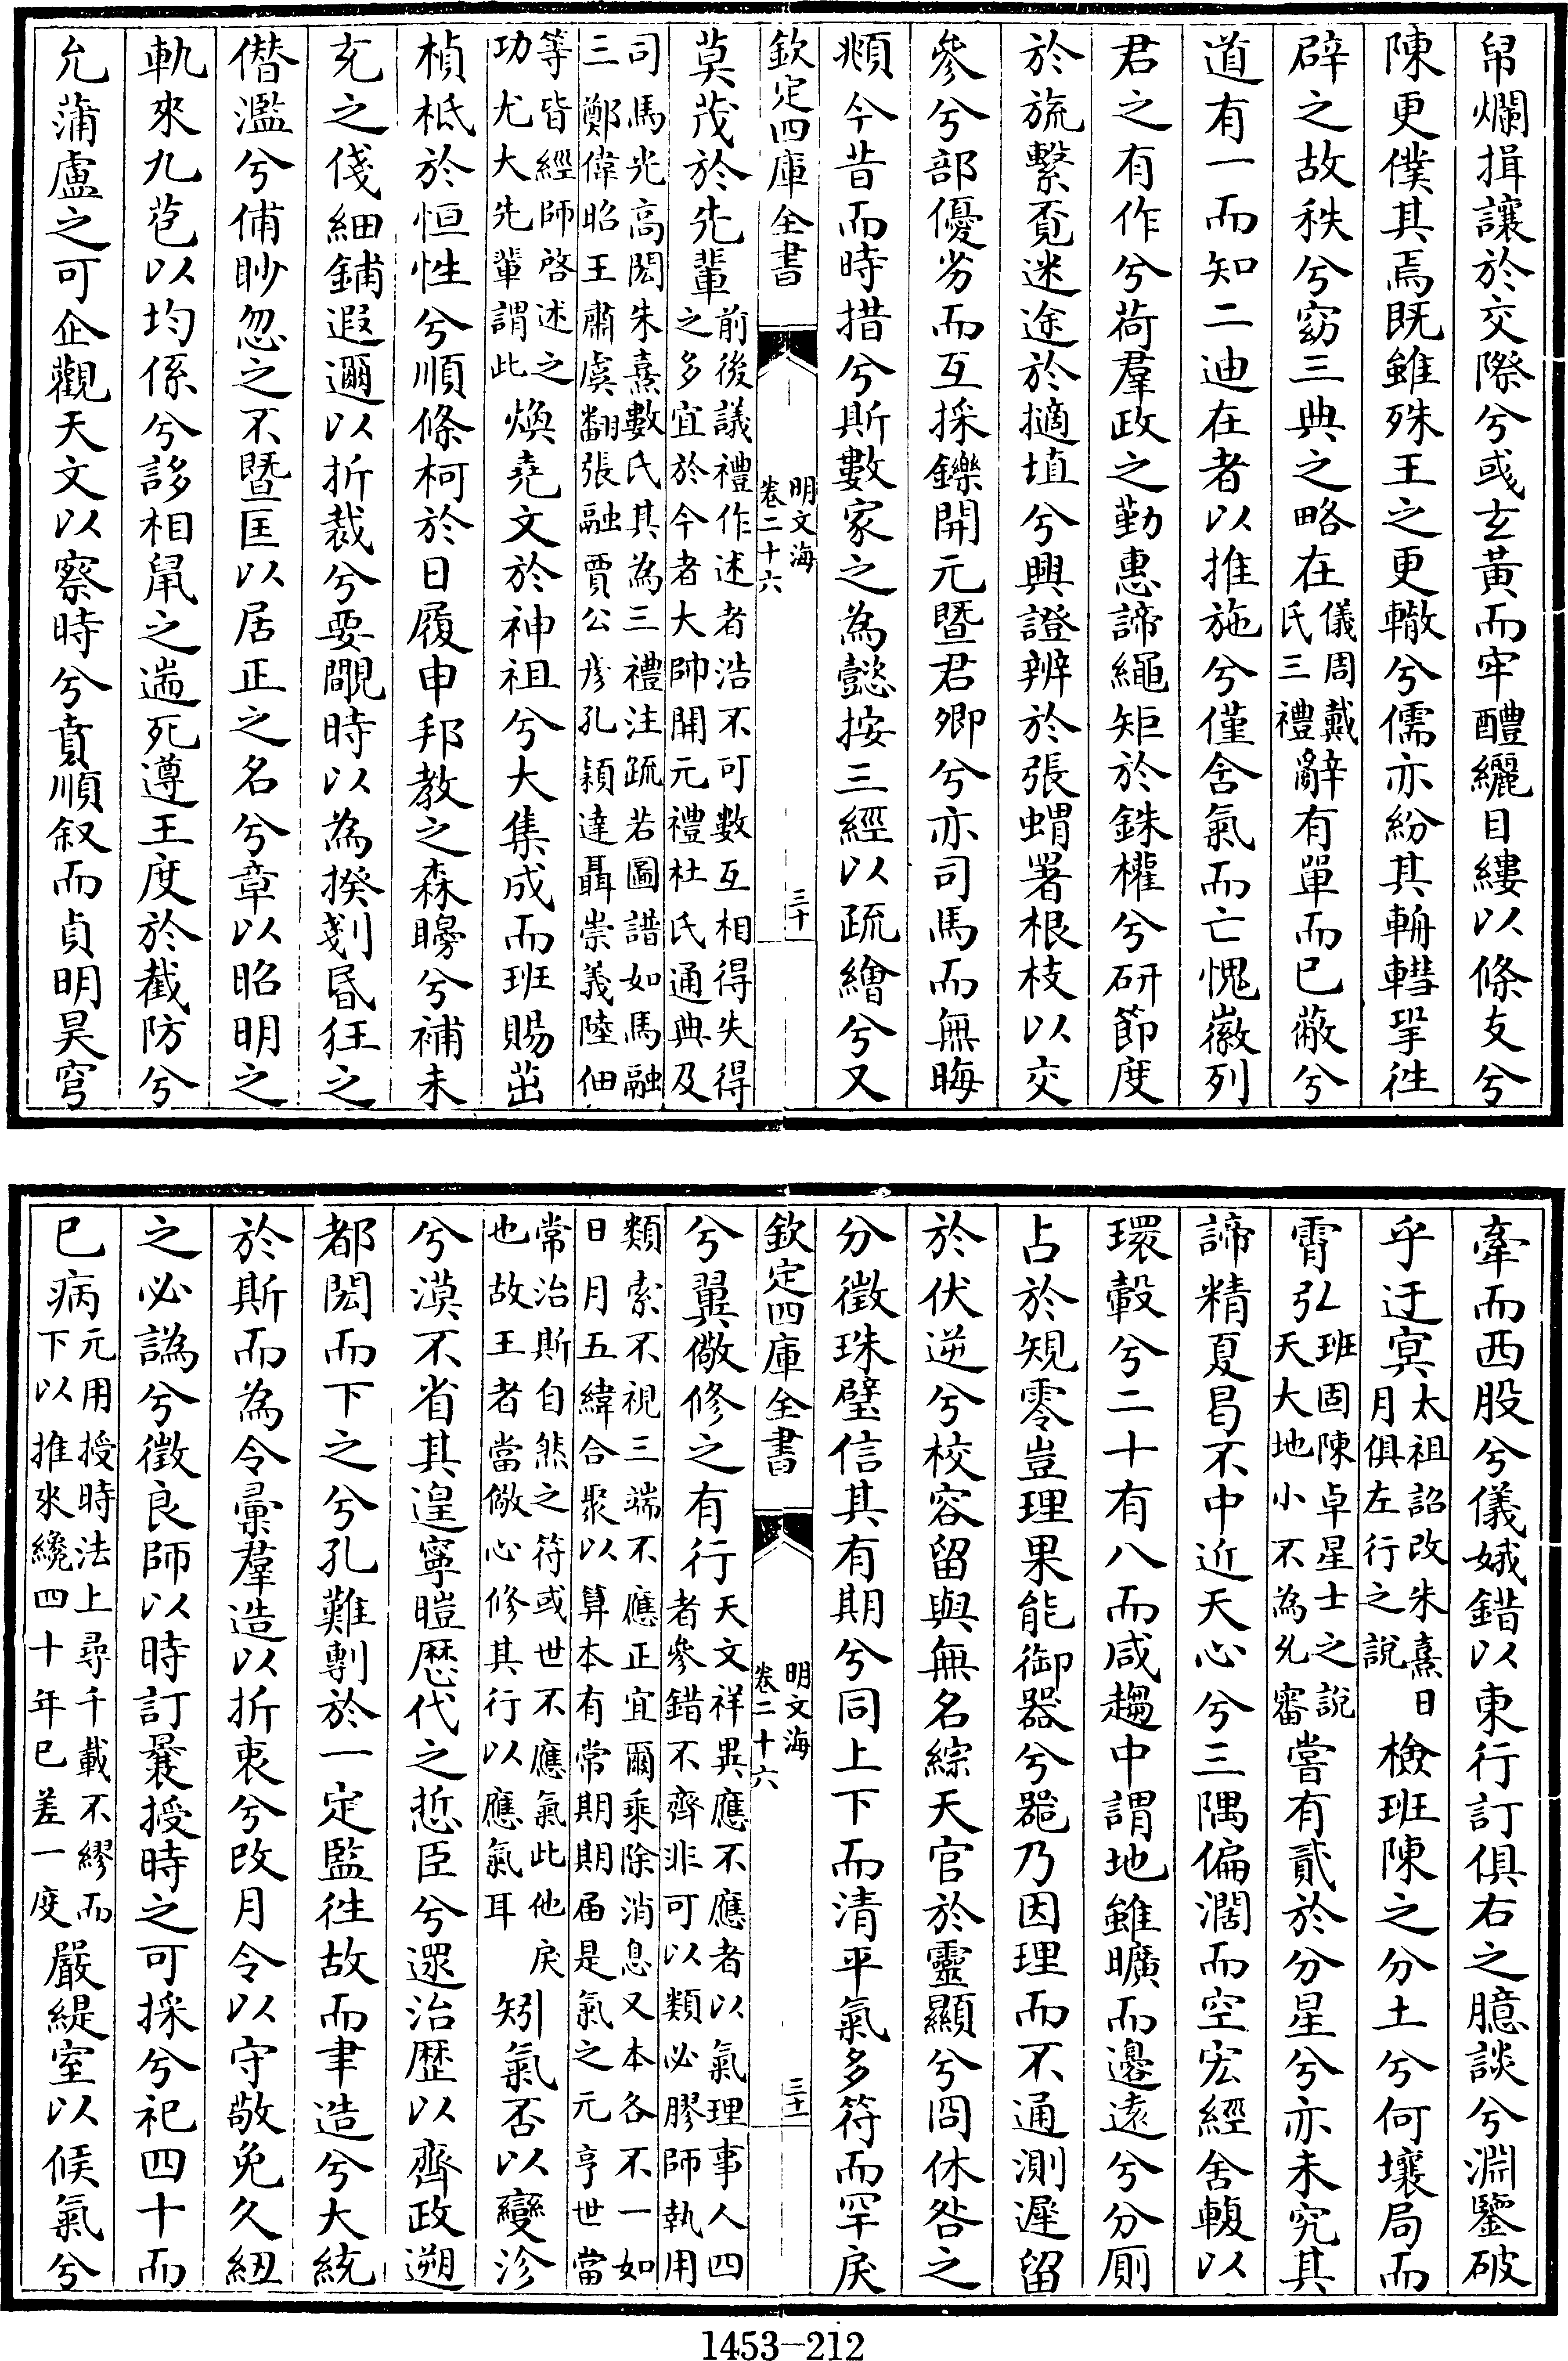 帛爛揖讓於交際兮或玄黄而牢醴纚目縷以條支兮
陳更僕其焉既雖殊王之更轍兮儒亦紛其輈轊挐徃
辟之故秩兮窈三典之略在儀周戴氏三禮辭有單而已蔽兮
道有一而知二迪在者以推施兮僅含氣而亡愧徽列
君之有作兮荷羣政之勤惠諦繩矩於銖權兮研節度
於旒繫覔迷途於擿埴兮興證辨於張蝟署根枝以交
參兮部優劣而互採鑠開元暨君卿兮亦司馬而無晦
頫今昔而時措兮斯數家之為懿按三經以疏繪兮又
欽定四庫全書 明文海 卷二十六 三十
莫茂於先輩前後議禮作述者浩不可數互相得失得之多宜於今者大帥開元禮杜氏通典及
司馬光高閎朱熹數氏其為三禮注疏若圖譜如馬融三鄭偉昭王肅虞翻張融賈公彦孔穎達聶崇義陸佃
等皆經師啓述之功尤大先輩謂此煥堯文於神祖兮大集成而班賜茁
楨柢於恒性兮順條柯於日履申邦教之森𥌓兮補未
充之俴細鋪遐邇以折裁兮要覵時以為揆剗昏狂之
僭濫兮俌眇忽之不暨匡以居正之名兮章以昭明之
軌來九苞以均係兮訬相鼠之遄死遵王度於截防兮
允蒲盧之可企觀天文以察時兮賁順叙而貞明昊穹
牽而西股兮儀娥錯以東行訂俱右之臆談兮淵鑒破
乎迂㝠太祖詔改朱熹日月俱左行之說檢班陳之分土兮何壤局而
霄弘班固陳卓星士之說天大地小不為允審嘗有貳於分星兮亦未究其
諦精夏曷不中近天心兮三隅偏濶而空宏經舍輹以
環轂兮二十有八而咸趨中謂地雖曠而邊遠兮分厠
占於規零豈理果能御器兮噐乃因理而不通測遲留
於伏逆兮校容留與無名綜天官於靈顯兮罔休咎之
分徵珠璧信其有期兮同上下而清平氣多符而罕戾
欽定四庫全書 明文海 卷二十六 三十一
兮翼儆修之有行天文祥異應不應者以氣理事人四者參錯不齊非可以類必膠師執用
類索不視三端不應正宜爾乘除消息又本各不一如日月五緯合聚以算本有常期期届是氣之元亨世當
常治斯自然之符或世不應氣此他戾也故王者當儆心修其行以應氣耳矧氣否以變沴
兮漠不省其遑寧暟厯代之悊臣兮遝治厯以齊政遡
都閎而下之兮孔難剸於一定監徃故而聿造兮大統
於斯而為令彚羣造以折衷兮攺月令以守敬免久紐
之必譌兮徵良師以時訂曩授時之可採兮祀四十而
已病元用授時法上尋千載不繆而下以推來纔四十年已差一度嚴緹室以候氣兮
1453-212